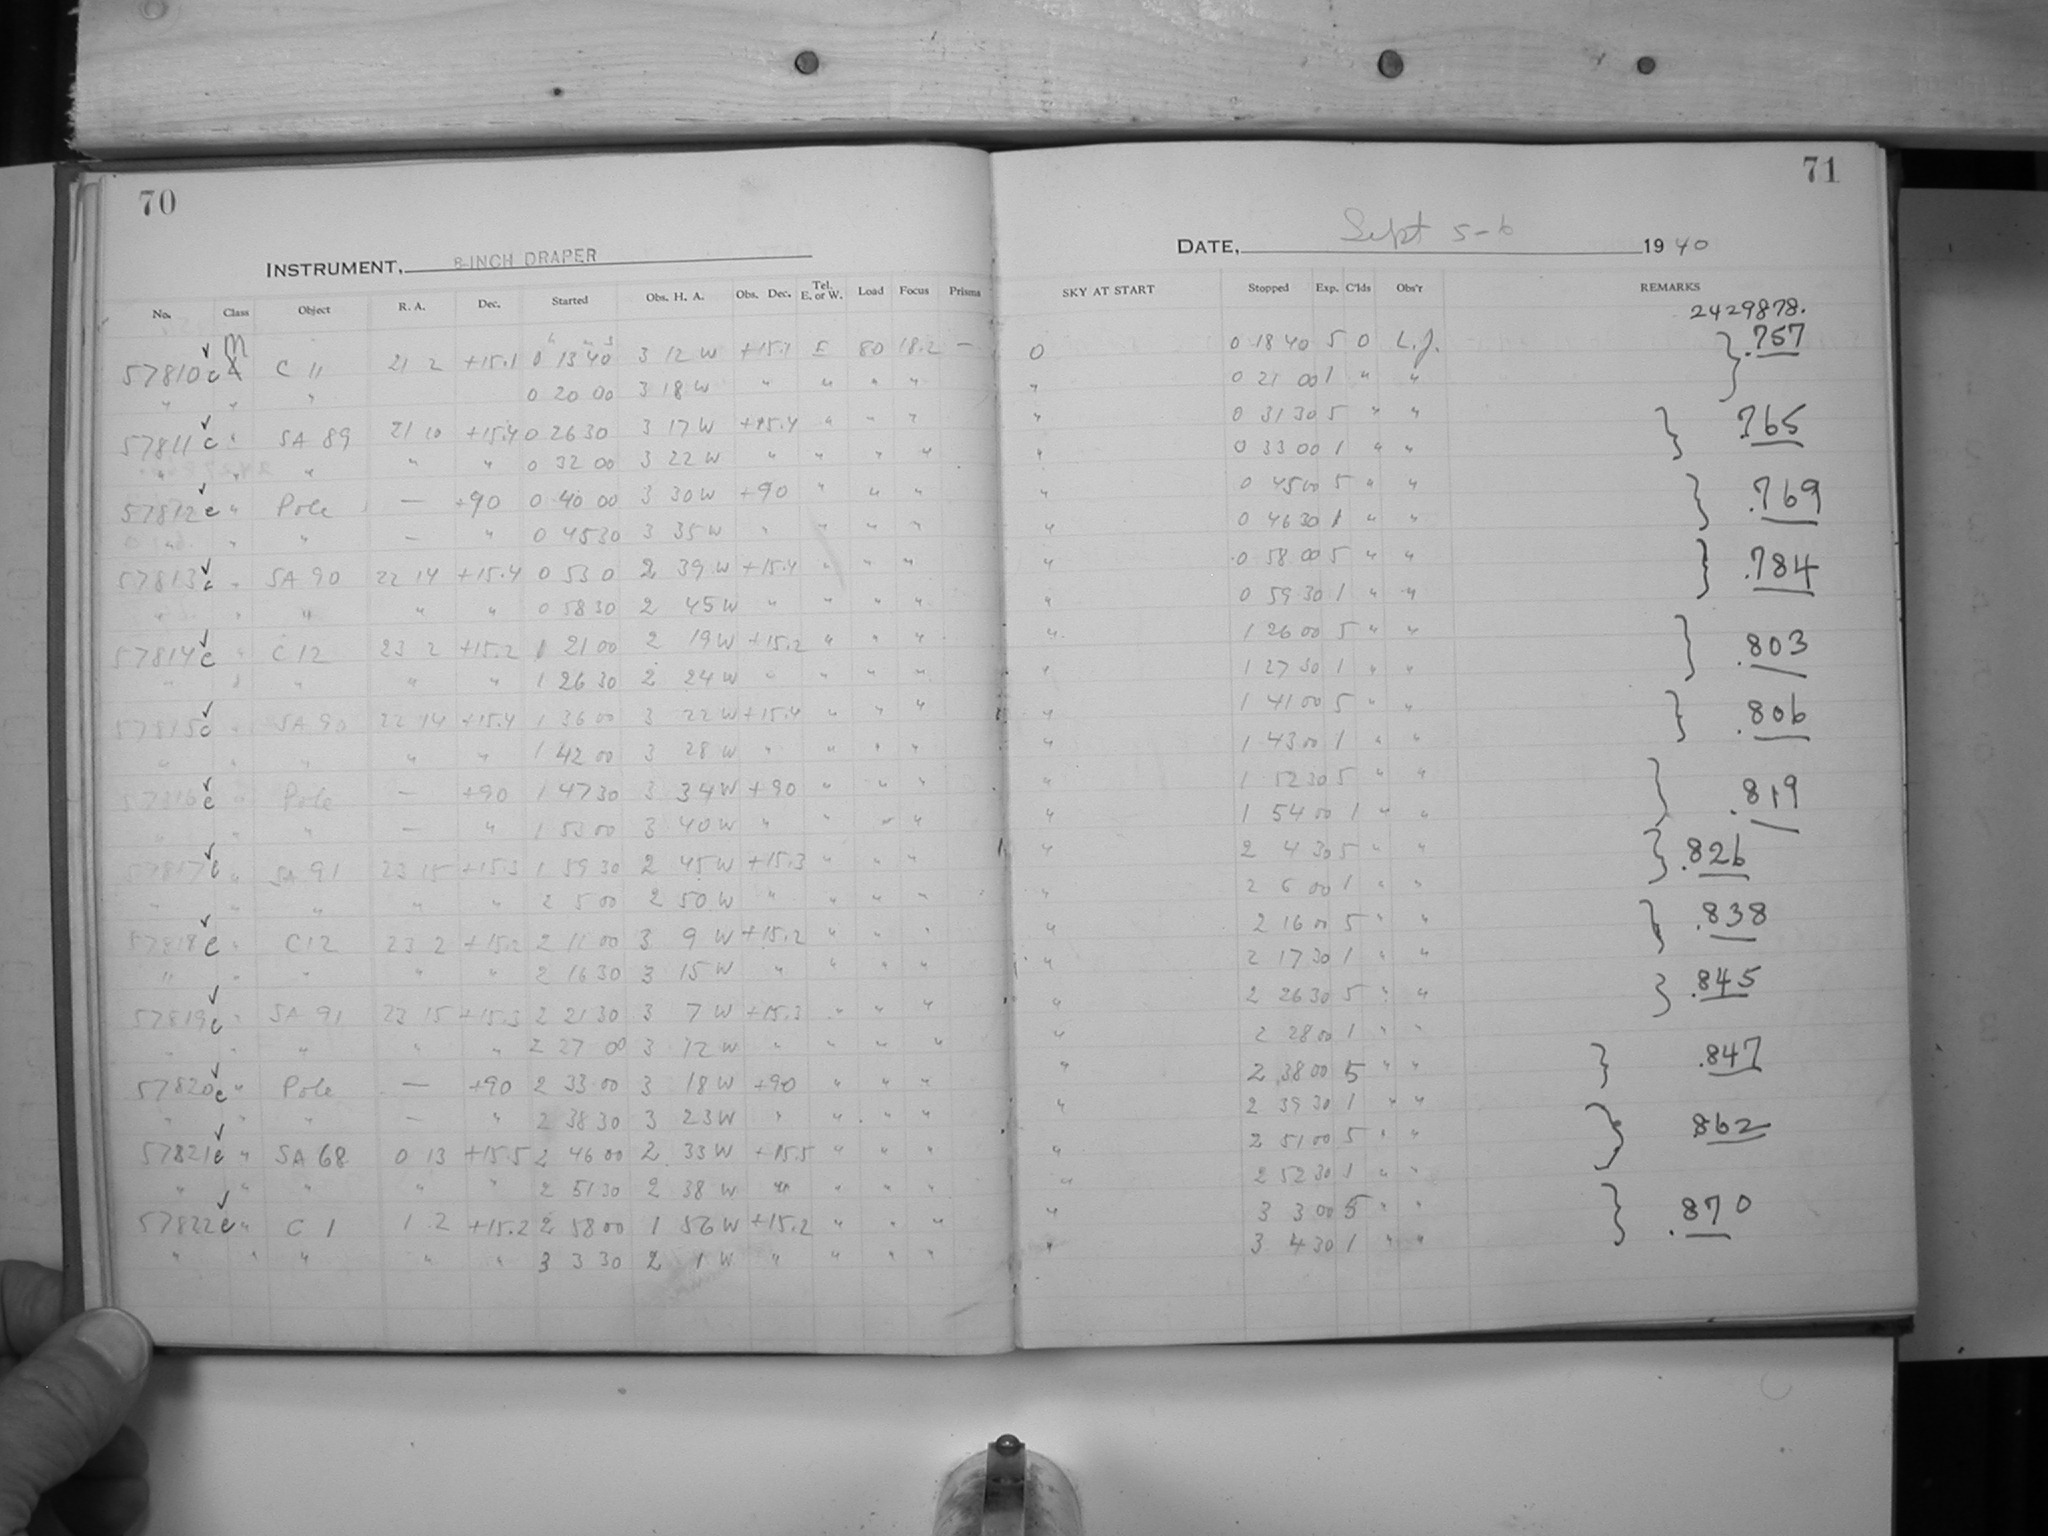 70
INSTRUMENT, 8-INCH DRAPER
No. Class Object R. A. Dec. Started Obs. H. A. Obs. Dec. Tel. E. or W. Load Focus Prisms
57810 c M C 11 21 2 +15.1 0 13 40 3 12 W +15.1 E 80 18.2 —
" " " 0 20 00 3 18 W " " " "
57811 c " SA 89 21 10 +15.4 0 26 30 3 17 W +15.4 " " "
" " " " " 0 32 00 3 22 W " " " "
57812 c " Pole — +90 0 40 00 3 30 W +90 " " "
" " " — " 0 45 30 3 35 W " " " "
57813 c " SA 90 22 14 +15.4 0 53 0 2 39 W +15.4 " " "
" " " " " 0 58 30 2 45 W " " " "
57814 c " C 12 23 2 +15.2 1 21 00 2 19 W +15.2 " " "
" " " " " 1 26 30 2 24 W " " " "
57815 c " SA 90 22 14 +15.4 1 36 00 3 22 W +15.4 " " "
" " " " " 1 42 00 3 28 W " " " "
57816 c " Pole — +90 1 47 30 3 34 W +90 " " "
" " " — " 1 53 00 3 40 W " " " "
57817 c " SA 91 23 15 +15.3 1 59 30 2 45 W +15.3 " " "
" " " " " 2 5 00 2 50 W " " " "
57818 c " C 12 23 2 +15.2 2 11 00 3 9 W +15.2 " " "
" " " " " 2 16 30 3 15 W " " " "
57819 c " SA 91 23 15 +15.3 2 21 30 3 7 W +15.3 " " "
" " " " " 2 27 00 3 12 W " " " "
57820 c " Pole — +90 2 33 00 3 18 W +90 " " "
" " " — " 2 38 30 3 23 W " " " "
57821 c " SA 68 0 13 +15.5 2 46 00 2 33 W +15.5 " " "
" " " " " 2 51 30 2 38 W " " " "
57822 c " C 1 1 2 +15.2 2 58 00 1 56 W +15.2 " " "
" " " " " 3 3 30 2 1 W " " " "
71
DATE, Sept 5-6 1940
SKY AT START Stopped Exp. C'lds Obs'r REMARKS
2429878.
0 0 18 40 5 0 L.J. .757
" 0 21 00 1 " "
" 0 31 30 5 " " .765
" 0 33 00 1 " "
" 0 45 00 5 " " .769
" 0 46 30 1 " "
" 0 58 00 5 " " .784
" 0 59 30 1 " "
" 1 26 00 5 " " .803
" 1 27 30 1 " "
" 1 41 00 5 " " .806
" 1 43 00 1 " "
" 1 52 30 5 " " .819
" 1 54 00 1 " "
" 2 4 30 5 " " .826
" 2 6 00 1 " "
" 2 16 00 5 " " .838
" 2 17 30 1 " "
" 2 26 30 5 " " .845
" 2 28 00 1 " "
" 2 38 00 5 " " .847
" 2 39 30 1 " "
" 2 51 00 5 " " .862
" 2 52 30 1 " "
" 3 3 00 5 " " .870
" 3 4 30 1 " "